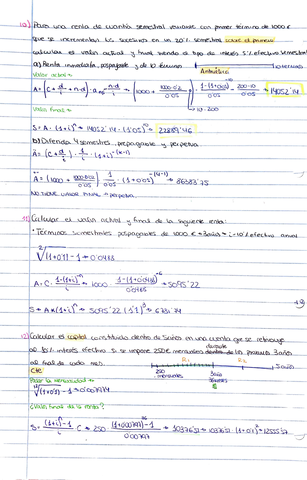 10) Para una renta de cuantía semestral variable con primer término de 1000€
que se incrementan los sucesivos en un 20% semestral sobre el primero
calcular el valor actual y final siendo el tipo de interés 5% efectivo semestral
a) Renta inmediata, pospagable y de 10 términos
Valor actual →
Aritmética
A = (C + d/i + n·d) · a - n·d/i = (1000 + 1000·0'2/0'05 + 200·10) · 1-(1'05)^-10/0'05 - 200·10/0'05 = 14052'14
Valor final →
S = A · (1+i)^n → 14052'14 · (1'05)^10 = 22889'46
b) Diferida 4 semestres, prepagable y perpetua
A = (C + d/i) · 1/i · (1+i)^-(k-1)
Ä = (1000 + 1000·0'2/0'05) · 1/0'05 · (1+0'05)^-(4-1) → 86383'75
No tiene valor final → perpetua.
11) Calcular el valor actual y final de la siguiente renta:
• Términos semestrales pospagables de 1000 € → 3 años → i = 10% efectivo anual
²√(1+0'1) - 1 = 0'0488
A = C · 1-(1+i)^-n/i → 1000 · 1-(1+0'0488)^-6/0'0488 → 5095'22
S = A × (1+i)^n → 5095'22 (1'1)^3 → 6781'74
12) Calcular el capital constituido dentro de 5 años en una cuenta que se retribuye
al 10% interés efectivo si se impone 250€ mensuales durante los próximos 3 años
al final de cada mes.
250
mensuales
3 años
5 años
Pasar la mensualidad →
¹²√(1+0'1) - 1 = 0'007974
¿Valor final de la renta?
S = (1+i)^n - 1/i · C → 250 · (1+0'00797)^36 - 1/0'00797 → 10376'51 → 10376'51 · (1+0'1)^2 = 12555'57